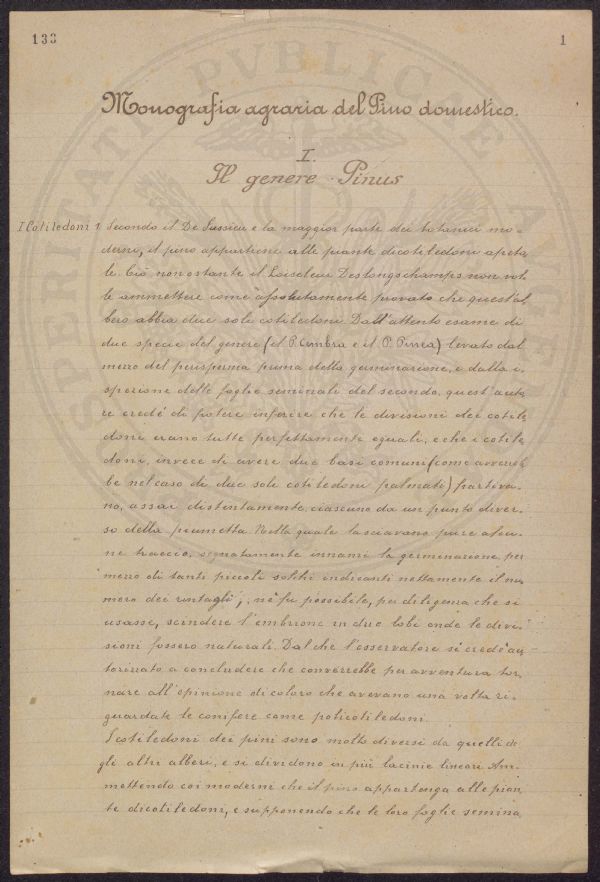 133
1
Monografia agraria del Pino domestico.
I.
Il genere Pinus
I Cotiledoni 1 Secondo il De Jussieu e la maggior parte dei botanici mo-
derni, il pino appartiene alle piante dicotiledoni apeta
le. Ciò non ostante il Loiseleur Deslongschamps non vol-
le ammettere come assolutamente provato che quest'al
bero abbia due sole cotiledoni. Dall'attento esame di
due specie del genere (il P. Cembra e il P. Pinea) levato dal
mezzo del perisperma prima della germinazione, e dalla i-
spezione delle foglie seminali del secondo, quest'auto
re credé di potere inferire che le divisioni dei cotile
doni erano tutte perfettamente eguali, e che i cotile
doni, invece di avere due basi comuni (come avvereb
be nel caso di due soli cotiledoni palmati) partiva-
no, assai distintamente, ciascuno da un punto diver-
so della piumetta. Nella quale lasciavano pure alcu-
ne traccie, segnatamente innanzi la germinazione, per
mezzo di tanti piccoli solchi indicanti nettamente il nu
mero dei rintagli; nè fu possibile, per diligenza che si
usasse, scindere l'embrione in due lobi onde le divi-
sioni fossero naturali. Dal che l'osservatore si credè au-
torizzato a concludere che converrebbe per avventura tor-
nare all'opinione di coloro che avevano una volta ri-
guardate le conifere come policotiledoni.
I cotiledoni dei pini sono molto diversi da quelli de
gli altri alberi, e si dividono in più lacinie lineari. Am-
mettendo coi moderni che il pino appartenga alle pian
te dicotiledoni, e supponendo che le loro foglie semina